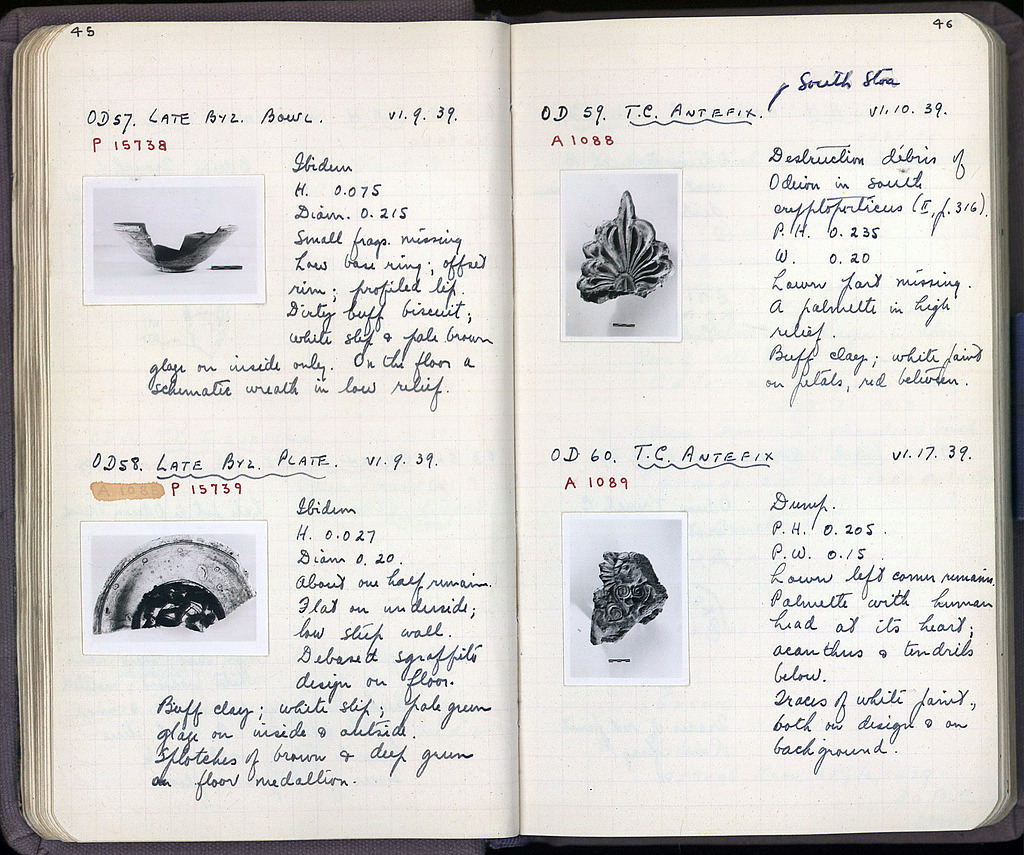 45
OD57. LATE BYZ. BOWL. VI.9.39.
P 15738
Ibidem
H. 0.075
Diam. 0.215
Small frags. missing
Low base ring; offset
rim; profiled lip.
Dirty buff biscuit;
white slip & pale brown
glaze on inside only. On the floor a
schematic wreath in low relief.
OD58. LATE BYZ. PLATE. VI.9.39.
A 1088 P 15739
Ibidem
H. 0.027
Diam 0.20
About one half remains.
Flat on underside;
low steep wall.
Debased sgraffito
design on floor.
Buff clay; white slip; pale green
glaze on inside & outside.
Splotches of brown & deep green
on floor medallion.
46
South Stoa
OD 59. T.C. ANTEFIX. VI.10.39.
A 1088
Destruction débris of
Odeion in south
cryptoporticus (II, p. 316).
P.H. 0.235
W. 0.20
Lower part missing.
A palmette in high
relief.
Buff clay; white paint
on petals, red between.
OD 60. T.C. ANTEFIX VI.17.39.
A 1089
Dump.
P.H. 0.205.
P.W. 0.15
Lower left corner remains.
Palmette with human
head at its heart;
acanthus & tendrils
below.
Traces of white paint,
both on design & on
background.